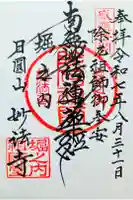 奉拝 令和七年八月三十一日
除厄祖師御奉安
南無妙法蓮華経
堀之内
日圓山 妙法寺